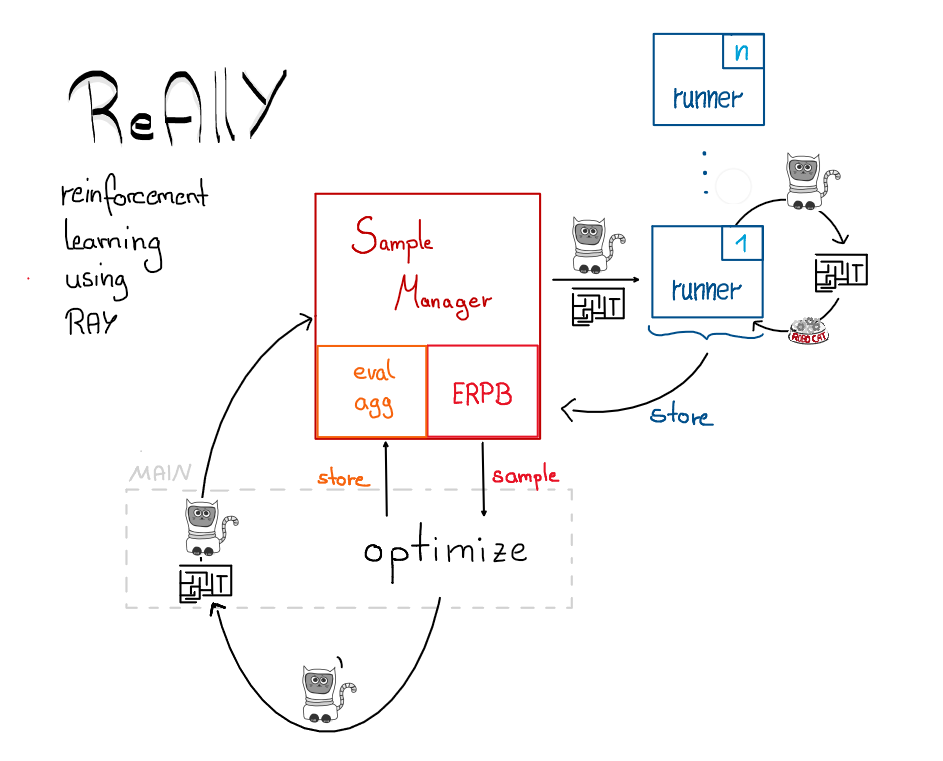 ReAllY
reinforcement
learning
using
RAY
Sample
Manager
eval
agg
ERPB
n
runner
1
runner
IT
IT
ROBO CAT
store
MAIN
store
sample
optimize
IT